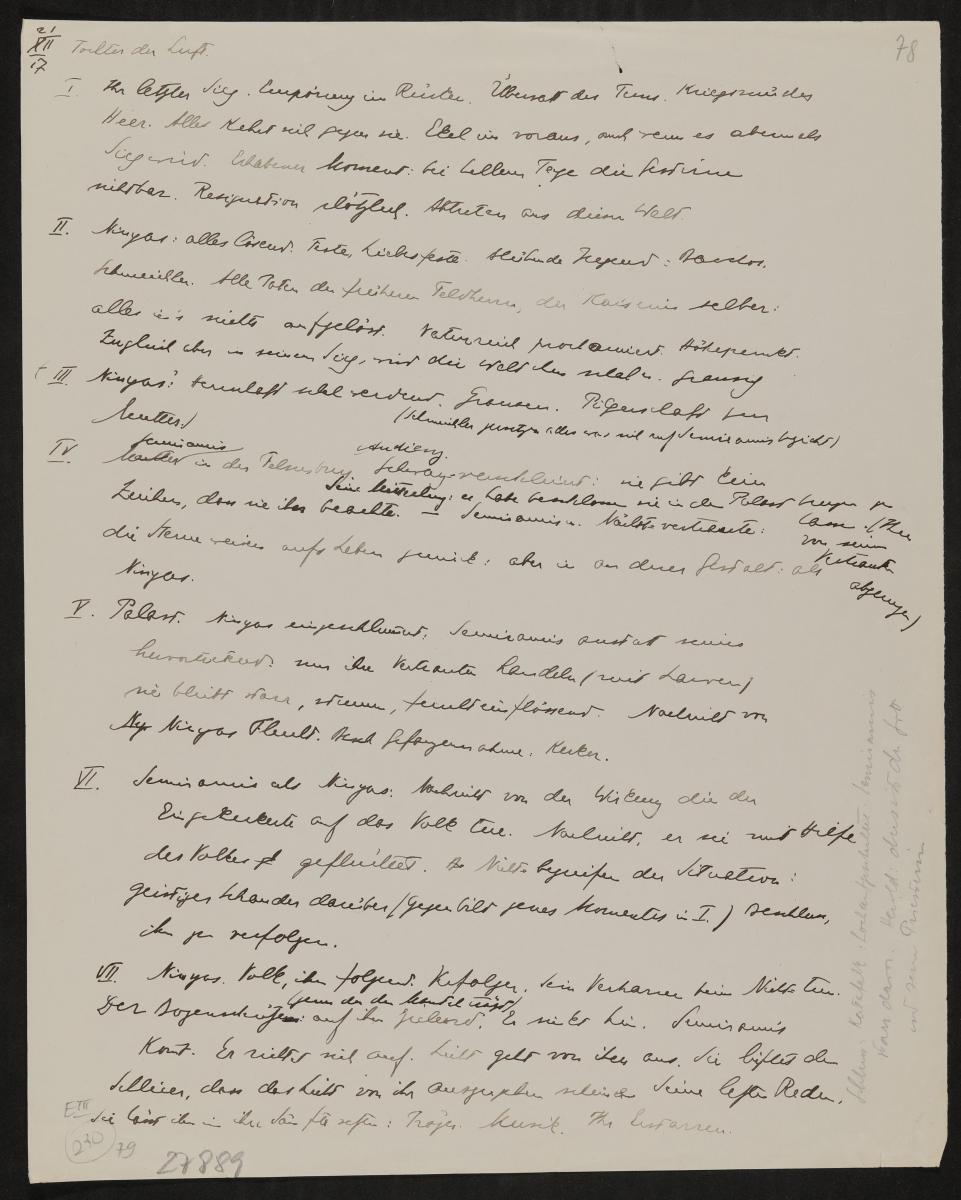 21
XII
17
Tochter der Luft.
78
I. Ihr letzter Sieg. Empörung im Rücken. Übersatt des Tuns. Kriegsmüdes
Heer. Alles kehrt sich gegen sie. Ekel im voraus, auch wenn es abermals
Sieg wird. Erhabener Moment: bei hellem Tage die Gestirne
sichtbar. Resignation plötzlich. Abtreten aus dieser Welt
II. Ninyas: alles lösend. Feste, Liebesfeste.
Schmeichler. Alle Taten der früheren Feldherrn, der Kaiserin selber:
alles in's nichts aufgelöst. Naturreich proclamiert. Höhepunkt.
Zugleich aber in seinem Sieg, wird die Welt ihm schal u. grausig
III. Ninyas: Grausen. Pilgerschaft zur
Mutter
(Schmeichler alles was sich auf Semiramis bezieht)
IV Semiramis in der Felsenburg Audienz. verschleiert: sie gibt kein
Zeichen, dass sie ihn beachte. – Seine Mitteilung: er habe beschlossen sie in den Palast bringen zu
lassen. (Ihm von seinen Vertrauten abgezwungen)
Semiramis u. Nächstvertraute:
die Sterne weisen aufs Leben zurück: aber in anderer Gestalt: als
Ninyas.
V. Palast. Ninyas eingeschlummert: Semiramis anstatt seiner
hervortretend: nur ihre Vertrauten handeln (mit Larven)
sie bleibt starr, stumm, furchteinflössend. Nachricht von
Ninyas Flucht. Gefangennahme. Kerker.
VI. Semiramis als Ninyas. Nachricht von der Wirkung die der
Eingekerkerte auf das Volk tue. Nachricht, er sei mit Hilfe
des Volkes geflüchtet. Nichtbegreifen der Situation:
geistiger Schauder darüber (Gegenbild jenes Momentes in I.) Beschluss,
ihn zu verfolgen.
VII. Ninyas. Volk, ihm folgend. Verfolger. Sein Verharren beim Nichts tun.
Der Bogenschütze: auf ihn zielend. Er sinkt hin. Semiramis
kommt. Er richtet sich auf. Licht geht von ihm aus. Sie lüftet den
Schleier, dass das Licht von ihr auszugehen scheint. Seine letzten Reden.
Sie lässt ihn in ihre Sänfte setzen: Träger. Musik. Ihr Erstarren.
Schluss: Semiramis
und seine Priesterin
E III
230
79
27889